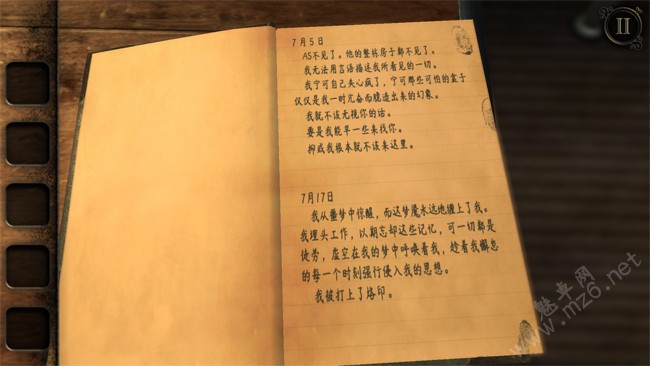 II
7月5日
AS不见了。他的整栋房子都不见了。
我无法用言语描述我所看见的一切。
我宁可自己失心疯了，宁可那些可怕的盒子
仅仅是我一时亢奋而臆造出来的幻象。
我就不该无视你的话。
要是我能早一些来找你。
抑或我根本就不该来这里。
7月17日
我从噩梦中惊醒，而这梦魇永远地缠上了我。
我埋头工作，以期忘却这些记忆，可一切都是
徒劳，虚空在我的梦中呼唤着我，趁着我懈怠
的每一个时刻强行侵入我的思想。
我被打上了烙印。
魅卓网
www.mz6.net